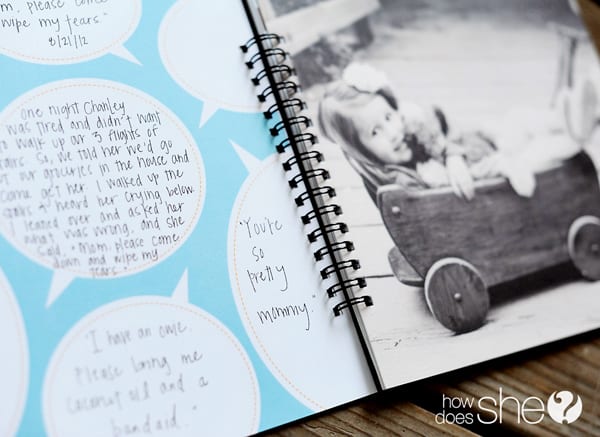 mom, please come
wipe my tears"
8/21/12
One night Charley
was tired and didn't want
to walk up our 3 flights of
stairs. So, we told her we'd go
put our groceries in the house and
come get her. I walked up the
stairs & heard her crying below.
I leaned over and asked her
what was wrong, and she
said, "Mom, please come
down and wipe my
tears."
"You're
so
pretty
mommy."
"I have an owie.
Please bring me
coconut oil and a
bandaid."
how
does
she?